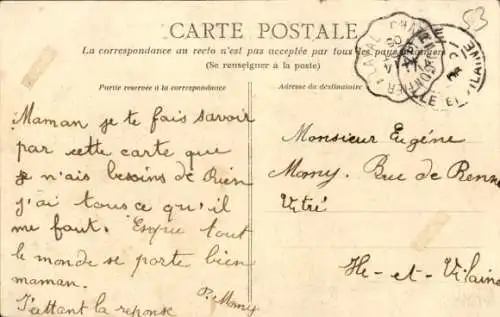 CARTE POSTALE
53
La correspondance au recto n'est pas acceptée par tous les pays étrangers
(Se renseigner à la poste)
Partie réservée à la correspondance
Adresse du destinataire
Maman je te fais savoir
par cette carte que
je n'ais besoins de Rien
j'ai tous ce qu'il
me faut. Espue tout
le monde se porte bien
maman.
J'attant la reponse
P. Mony
Monsieur Eugéne
Mony. Rue de Renn
Vitré
Ile-et-Vilain
LAVAL
ILLE ET VILAINE